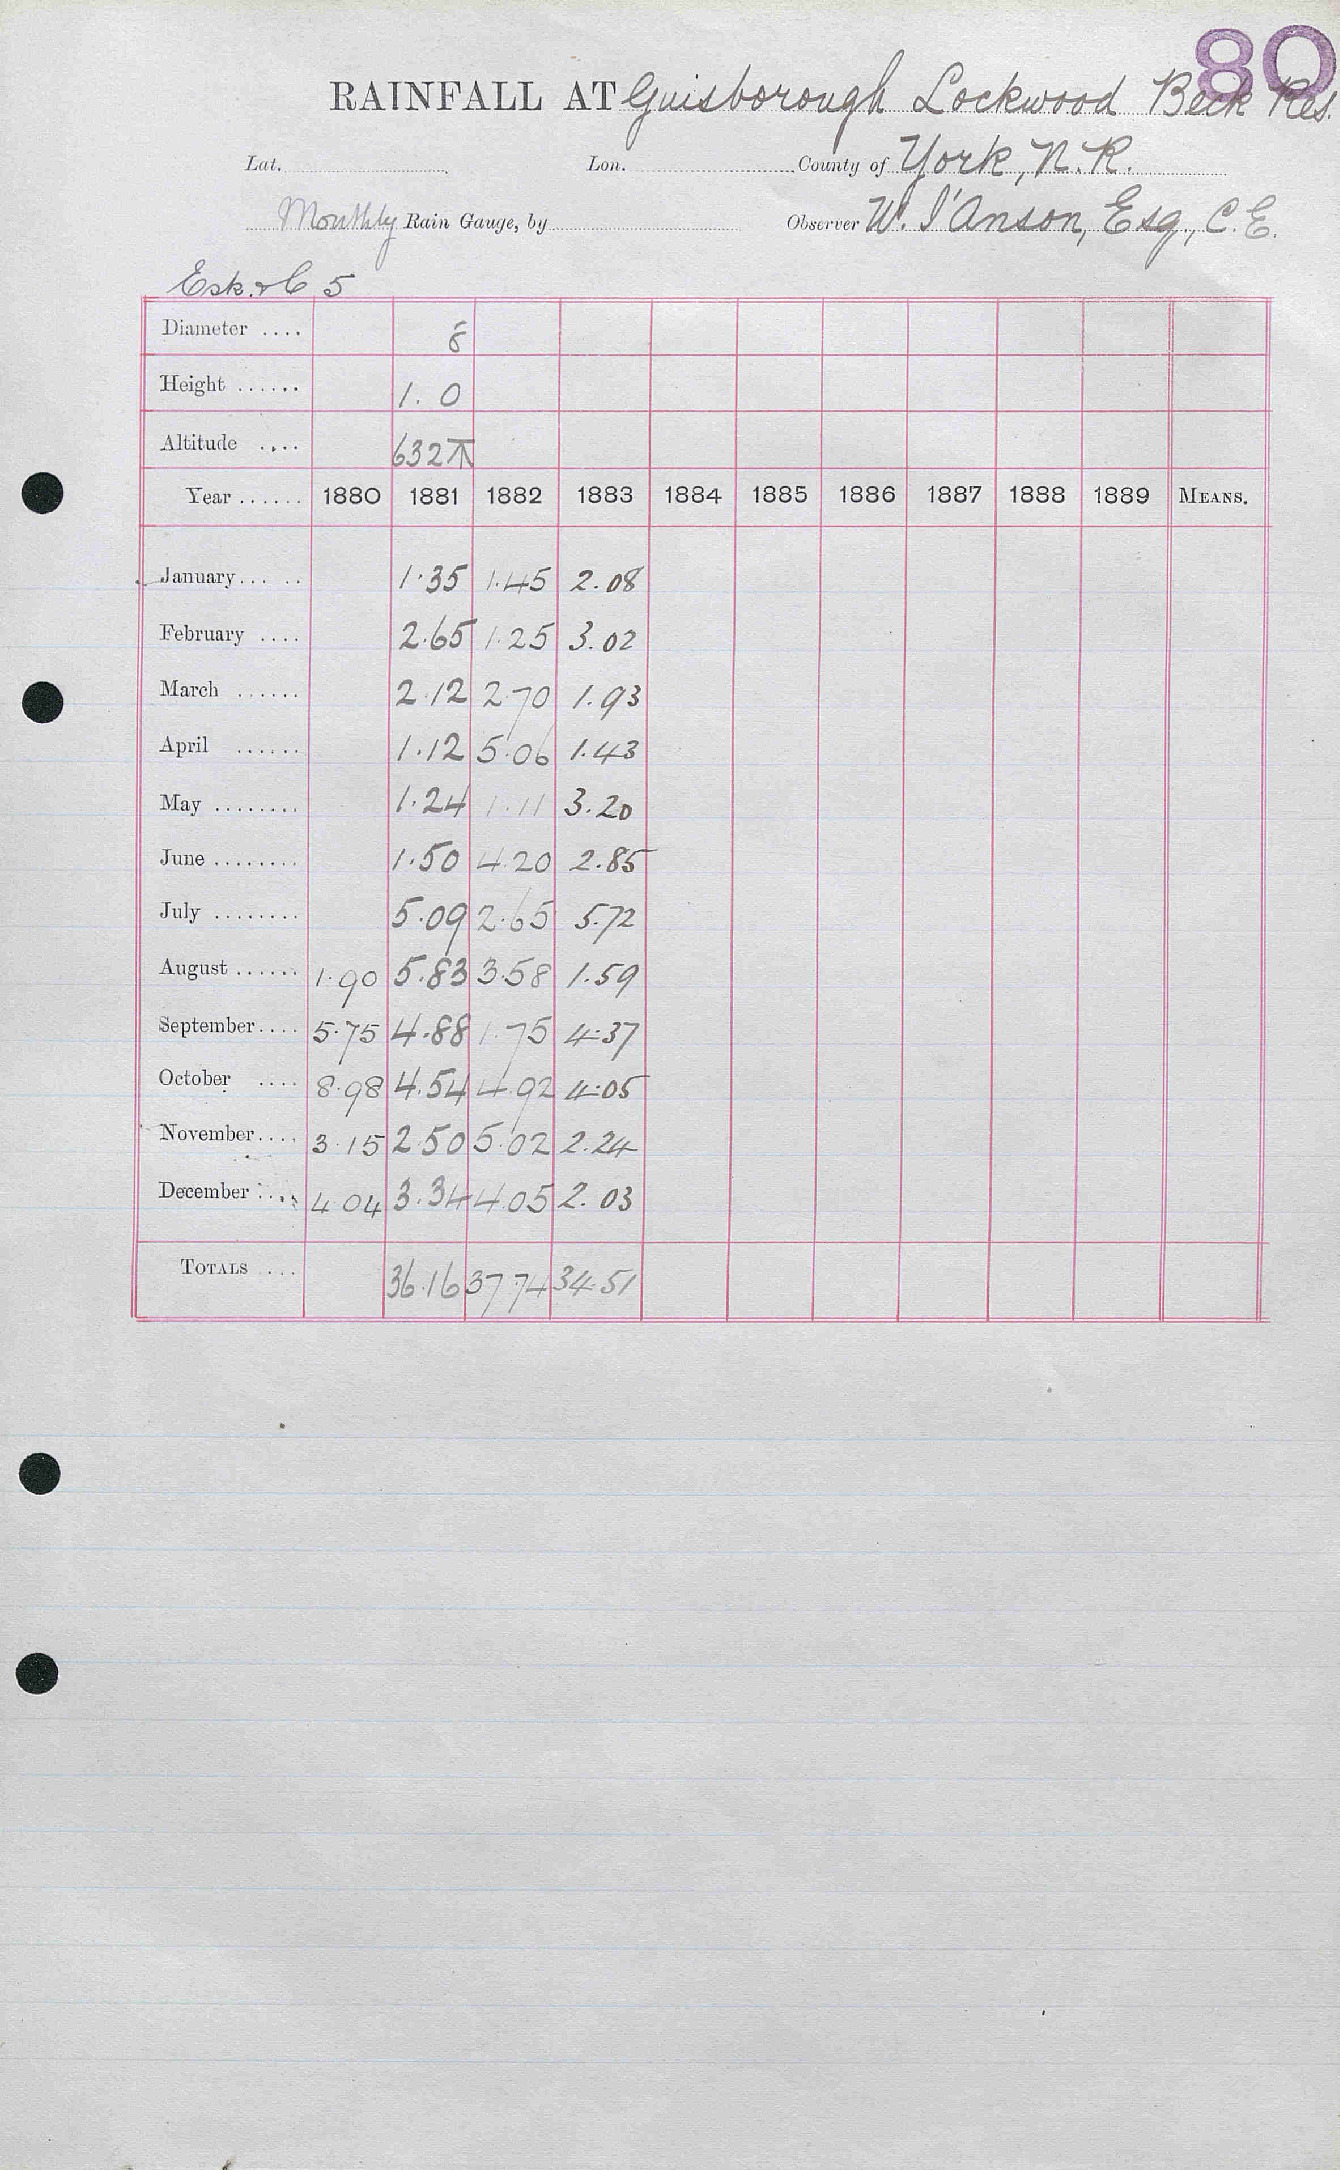 80
RAINFALL AT Guisborough Lockwood Beck Res.
Lat. Lon. County of York, N.R.
Monthly Rain Gauge, by Observer W. I'Anson, Esq., C.E.
Esk. & C 5
Diameter .... 8
Height ...... 1. 0
Altitude .... 632
Year ...... 1880 1881 1882 1883 1884 1885 1886 1887 1888 1889 MEANS.
January... .. 1.35 1.45 2.08
February .... 2.65 1.25 3.02
March ...... 2.12 2.70 1.93
April ...... 1.12 5.06 1.43
May ........ 1.24 1.11 3.20
June ........ 1.50 4.20 2.85
July ........ 5.09 2.65 5.72
August ...... 1.90 5.83 3.58 1.59
September.... 5.75 4.88 1.75 4.37
October .... 8.98 4.54 4.92 4.05
November.... 3.15 2.50 5.02 2.24
December .... 4.04 3.34 4.05 2.03
TOTALS .... 36.16 37.74 34.51